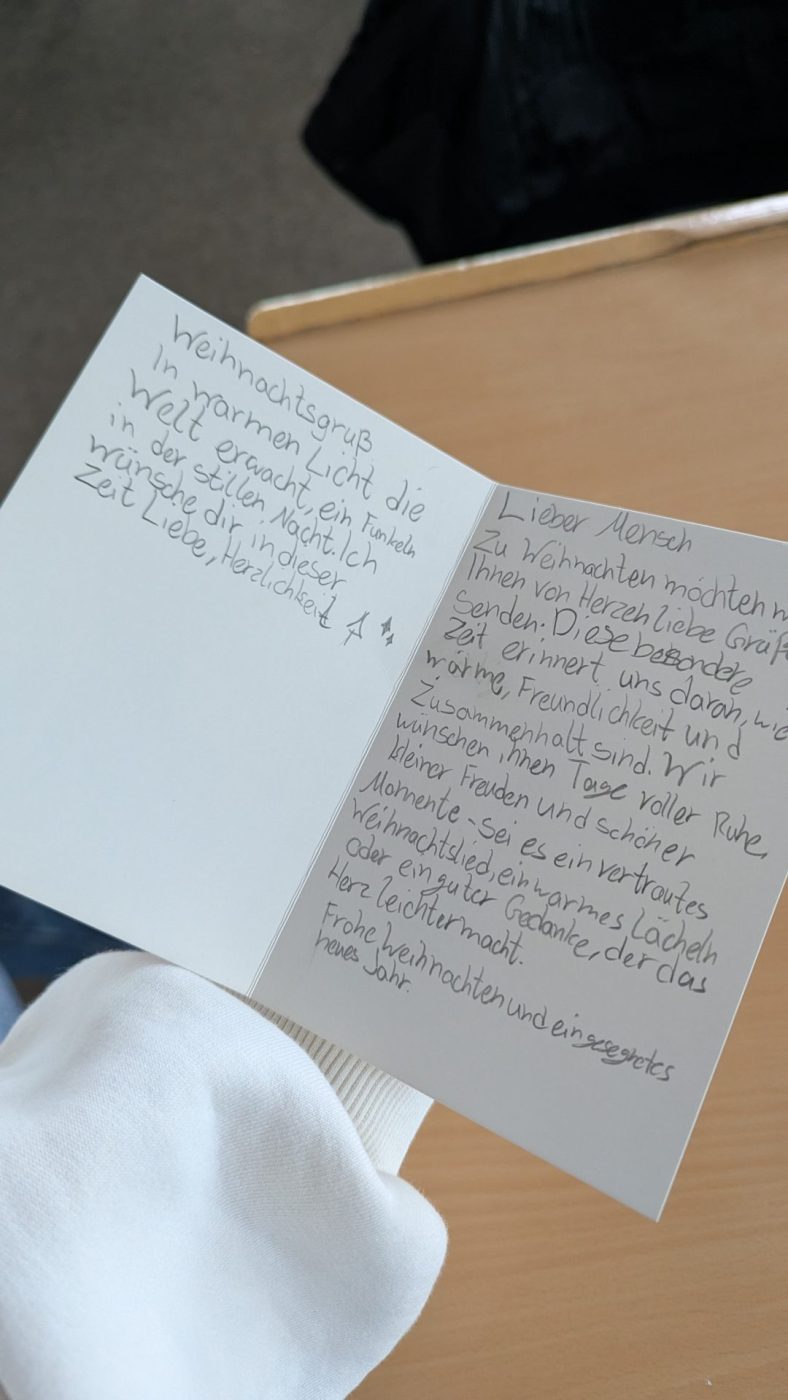 Weihnachtsgruß
In warmen Licht die
Welt erwacht, ein Funkeln
in der stillen Nacht. Ich
wünsche dir in dieser
Zeit Liebe, Herzlichkeit
Lieber Mensch
Zu Weihnachten möchten
Ihnen von Herzen liebe Grüße
senden. Diese besondere
Zeit erinnert uns daran, wie
wärme, Freundlichkeit und
Zusammenhalt sind. Wir
wünschen ihnen Tage voller Ruhe,
kleiner Freuden und schöner
Momente - Sei es ein vertrautes
Weihnachtslied, ein warmes Lächeln
oder ein guter Gedanke, der das
Herz leichter macht.
Frohe Weihnachten und ein gesegnetes
neues Jahr.